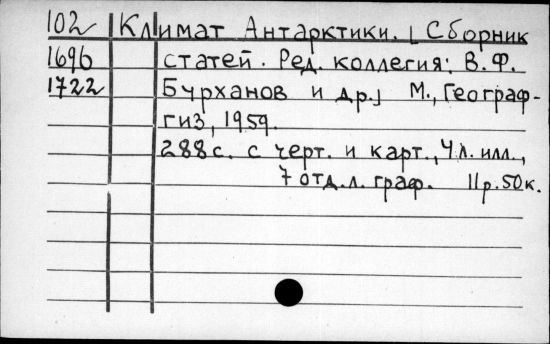 102 Климат Антарктики. [Сборник
1696 статей. Ред. коллегия: В.Ф.
1722 Бурханов и др.] М., Географ-
гиз, 1959.
288с. с черт. и карт., 4 л. илл.,
7 отд.л. граф. 11р.50к.